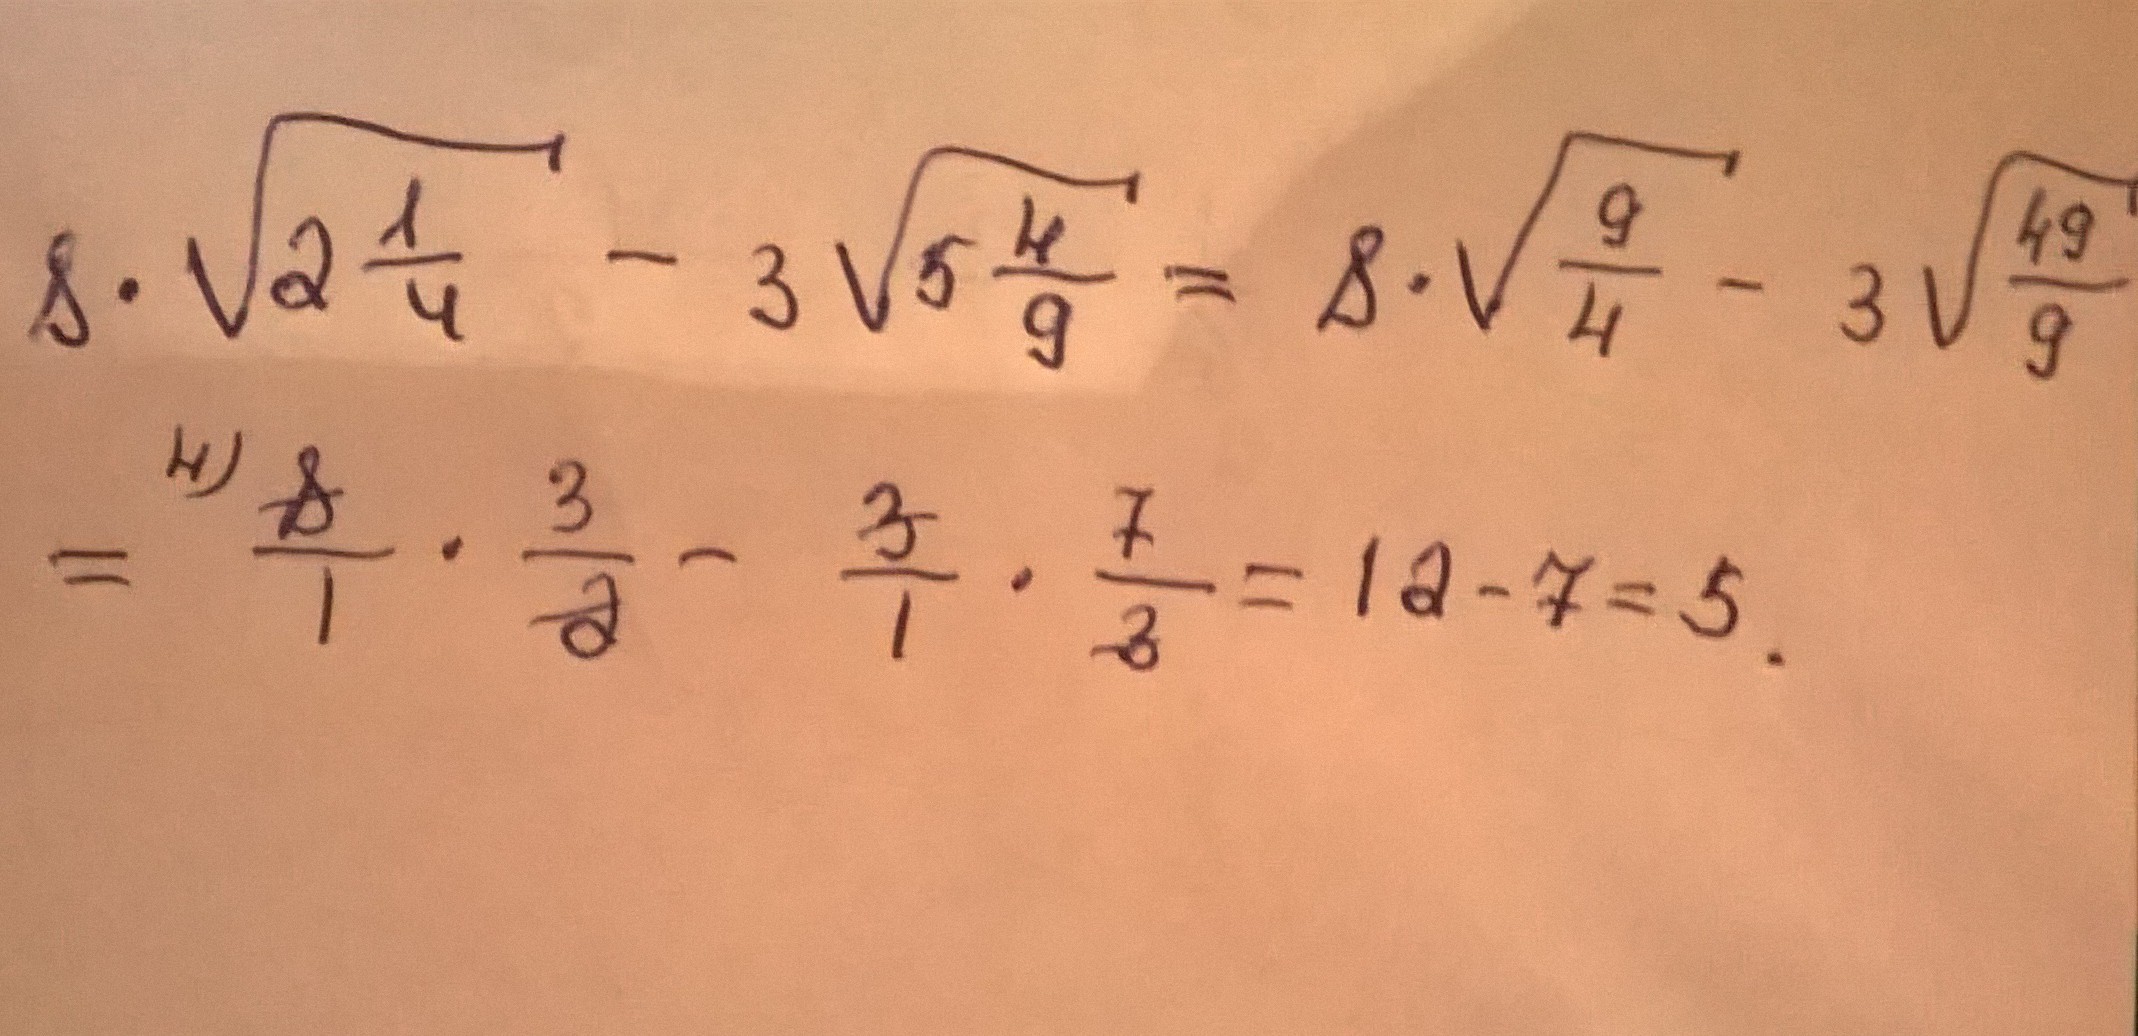 8 · √(2 1/4) - 3 √(5 4/9) = 8 · √(9/4) - 3 √(49/9)
= 4) 8/1 · 3/2 - 3/1 · 7/3 = 12 - 7 = 5.